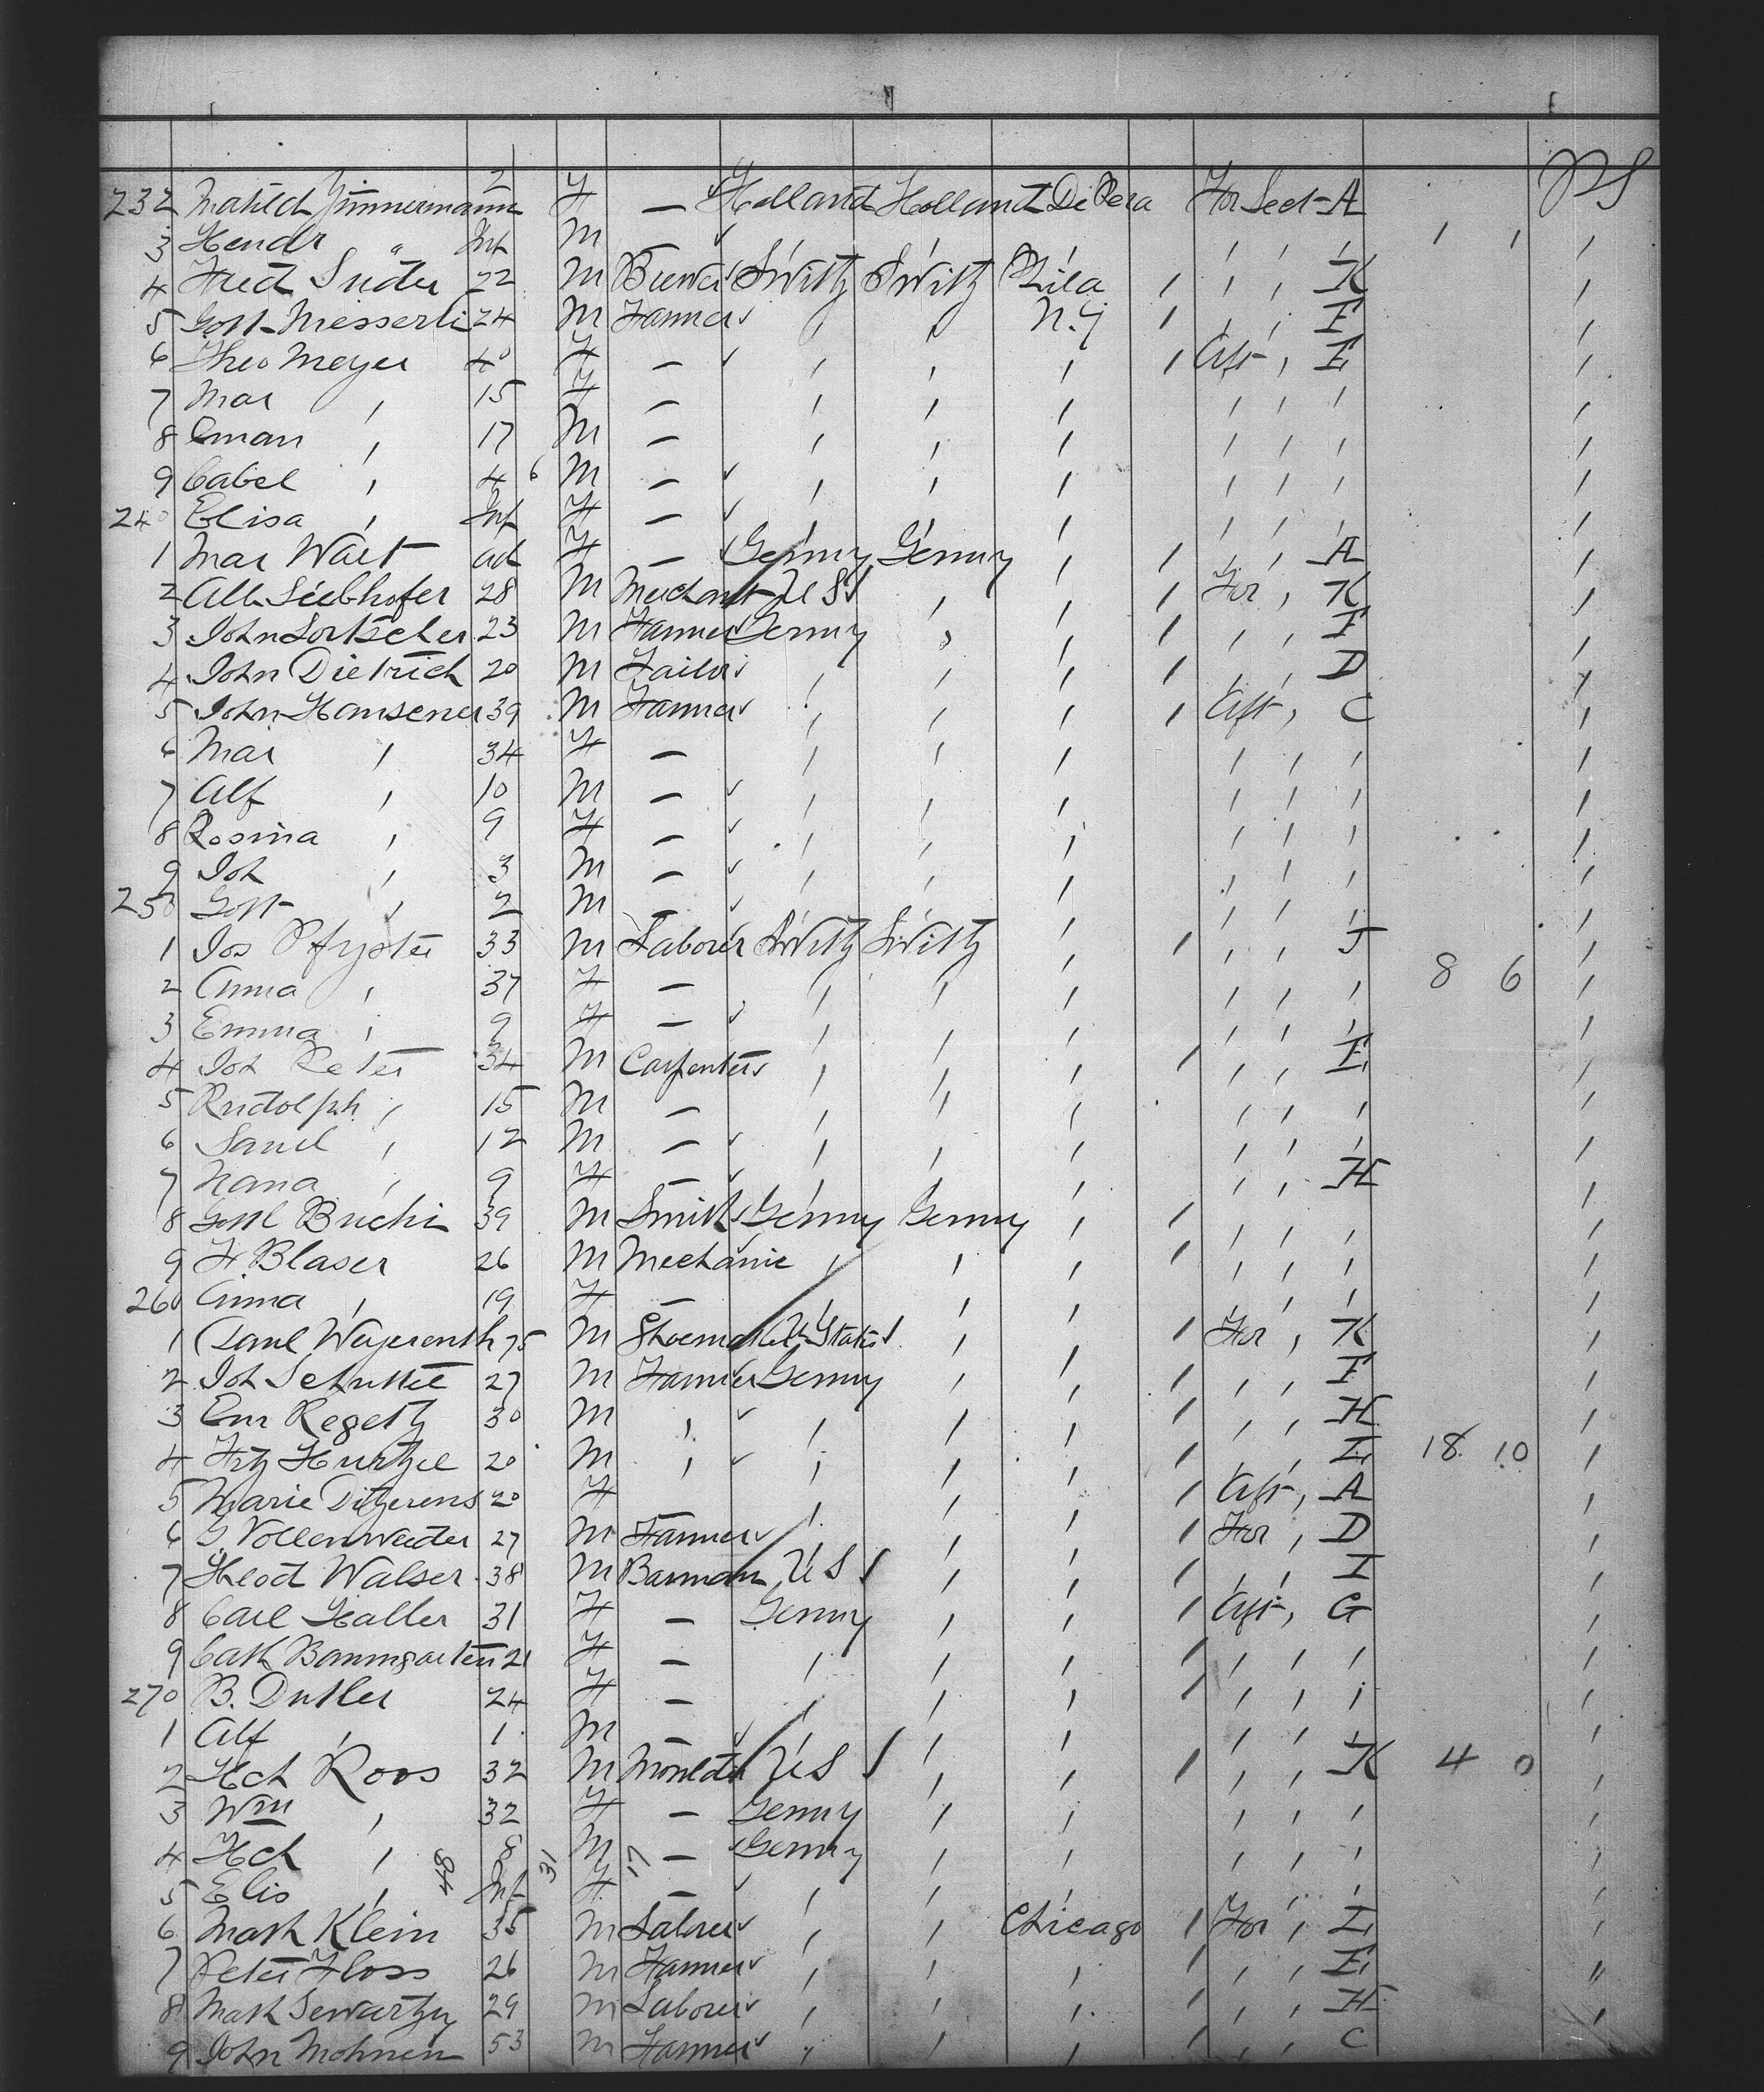 232 Matild Zimmermann 2 F — Holland Holland De Pera For Sect- A PS
3 Hendr " Inf M ' ' ' ' ' ' 1 1 '
4 Fred Suder 22 M Brewer Switz Switz Phila / ' ' K '
5 Gott Messerli 24 M Farmer ' ' N.Y / ' ' F '
6 Theo Meyer 40 F — ' ' ' / Aft ' E '
7 Mar ' 15 F — ' ' ' ' ' ' '
8 Eman ' 17 M — ' ' ' ' ' ' '
9 Cabel ' 4 6 M — ' ' ' ' ' ' '
240 Elisa ' Inf F — ' ' ' ' ' ' '
1 Mar Wart ad F — Germy Germy ' / ' ' A '
2 Alb Siebhofer 28 M Merchant U S ' ' / For ' K '
3 John Lortscher 23 M Farmer Germy ' ' / ' ' F '
4 John Dietrich 20 M Tailor ' ' ' / ' ' D '
5 John Hansener 39 M Farmer ' ' ' / Aft ' C '
6 Mar ' 34 F — ' ' ' ' ' ' '
7 Alf ' 10 M — ' ' ' ' ' ' '
8 Rosina ' 9 F — ' ' ' ' ' ' '
9 Joh ' 3 M — ' ' ' ' ' ' '
250 Gott ' 2 M — ' ' ' ' ' ' '
1 Jos Pfyster 33 M Laborer Switz Switz ' / ' ' J '
2 Anna ' 37 F — ' ' ' ' ' ' 8 6 '
3 Emma ' 9 F — ' ' ' ' ' ' '
4 Joh Peter 34 M Carpenter ' ' ' / ' ' E '
5 Rudolph ' 15 M — ' ' ' ' ' ' '
6 Saml ' 12 M — ' ' ' ' ' ' '
7 Nana ' 9 F — ' ' ' ' ' H '
8 Gottl Buchi 39 M Smith Germy Germy ' / ' ' ' '
9 F Blaser 26 M Mechanic ' ' ' / ' ' ' '
260 Anna ' 19 F — ' ' ' ' ' ' '
1 Paul Weyerenth 75 M Shoemaker U States ' ' / For ' K '
2 Joh Schuttee 27 M Farmer Germy ' ' / ' ' F '
3 Em Regetz 30 M ' ' ' ' / ' ' H '
4 Frtz Hurtzel 20 M ' ' ' ' / ' ' E 18 10 '
5 Marie Ditzerens 20 F ' ' ' / Aft ' A '
6 G. Vollenweider 27 M Farmer ' ' ' / For ' D '
7 Theod Walser 38 M Barman U S ' ' / ' ' I '
8 Carl Haller 31 F — Germy ' ' / Aft ' G '
9 Cath Baumgarten 21 F — ' ' ' / ' ' ' '
270 B. Dutler 24 F — ' ' ' / ' ' ' '
1 Alf ' 1 M — ' ' ' ' ' ' '
2 Hch Roos 32 M Moulder U S ' ' / ' ' K 4 0 '
3 Wm ' 32 F — Germy ' ' ' ' ' '
4 Hch ' 8 M — Germy ' ' ' ' ' '
48 31 17
5 Elis ' Inf F — ' ' ' ' ' ' '
6 Math Klein 35 M Laborer ' ' Chicago / For ' E '
7 Peter Floss 26 M Farmer ' ' ' / ' ' E "
8 Math Sewartzy 29 M Laborer ' ' ' / ' ' H '
9 John Mohnen 53 M Farmer ' ' ' / ' ' C